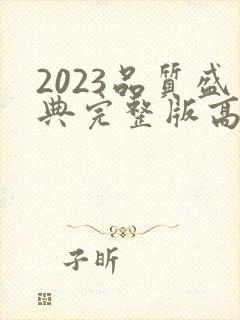 2023品質盛
典完整版高
子昕